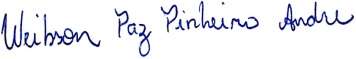 Weibson Paz Pinheiro Andre